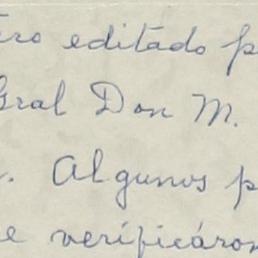 ero editado p
Gral Don M.
. Algunos p
e verificáron